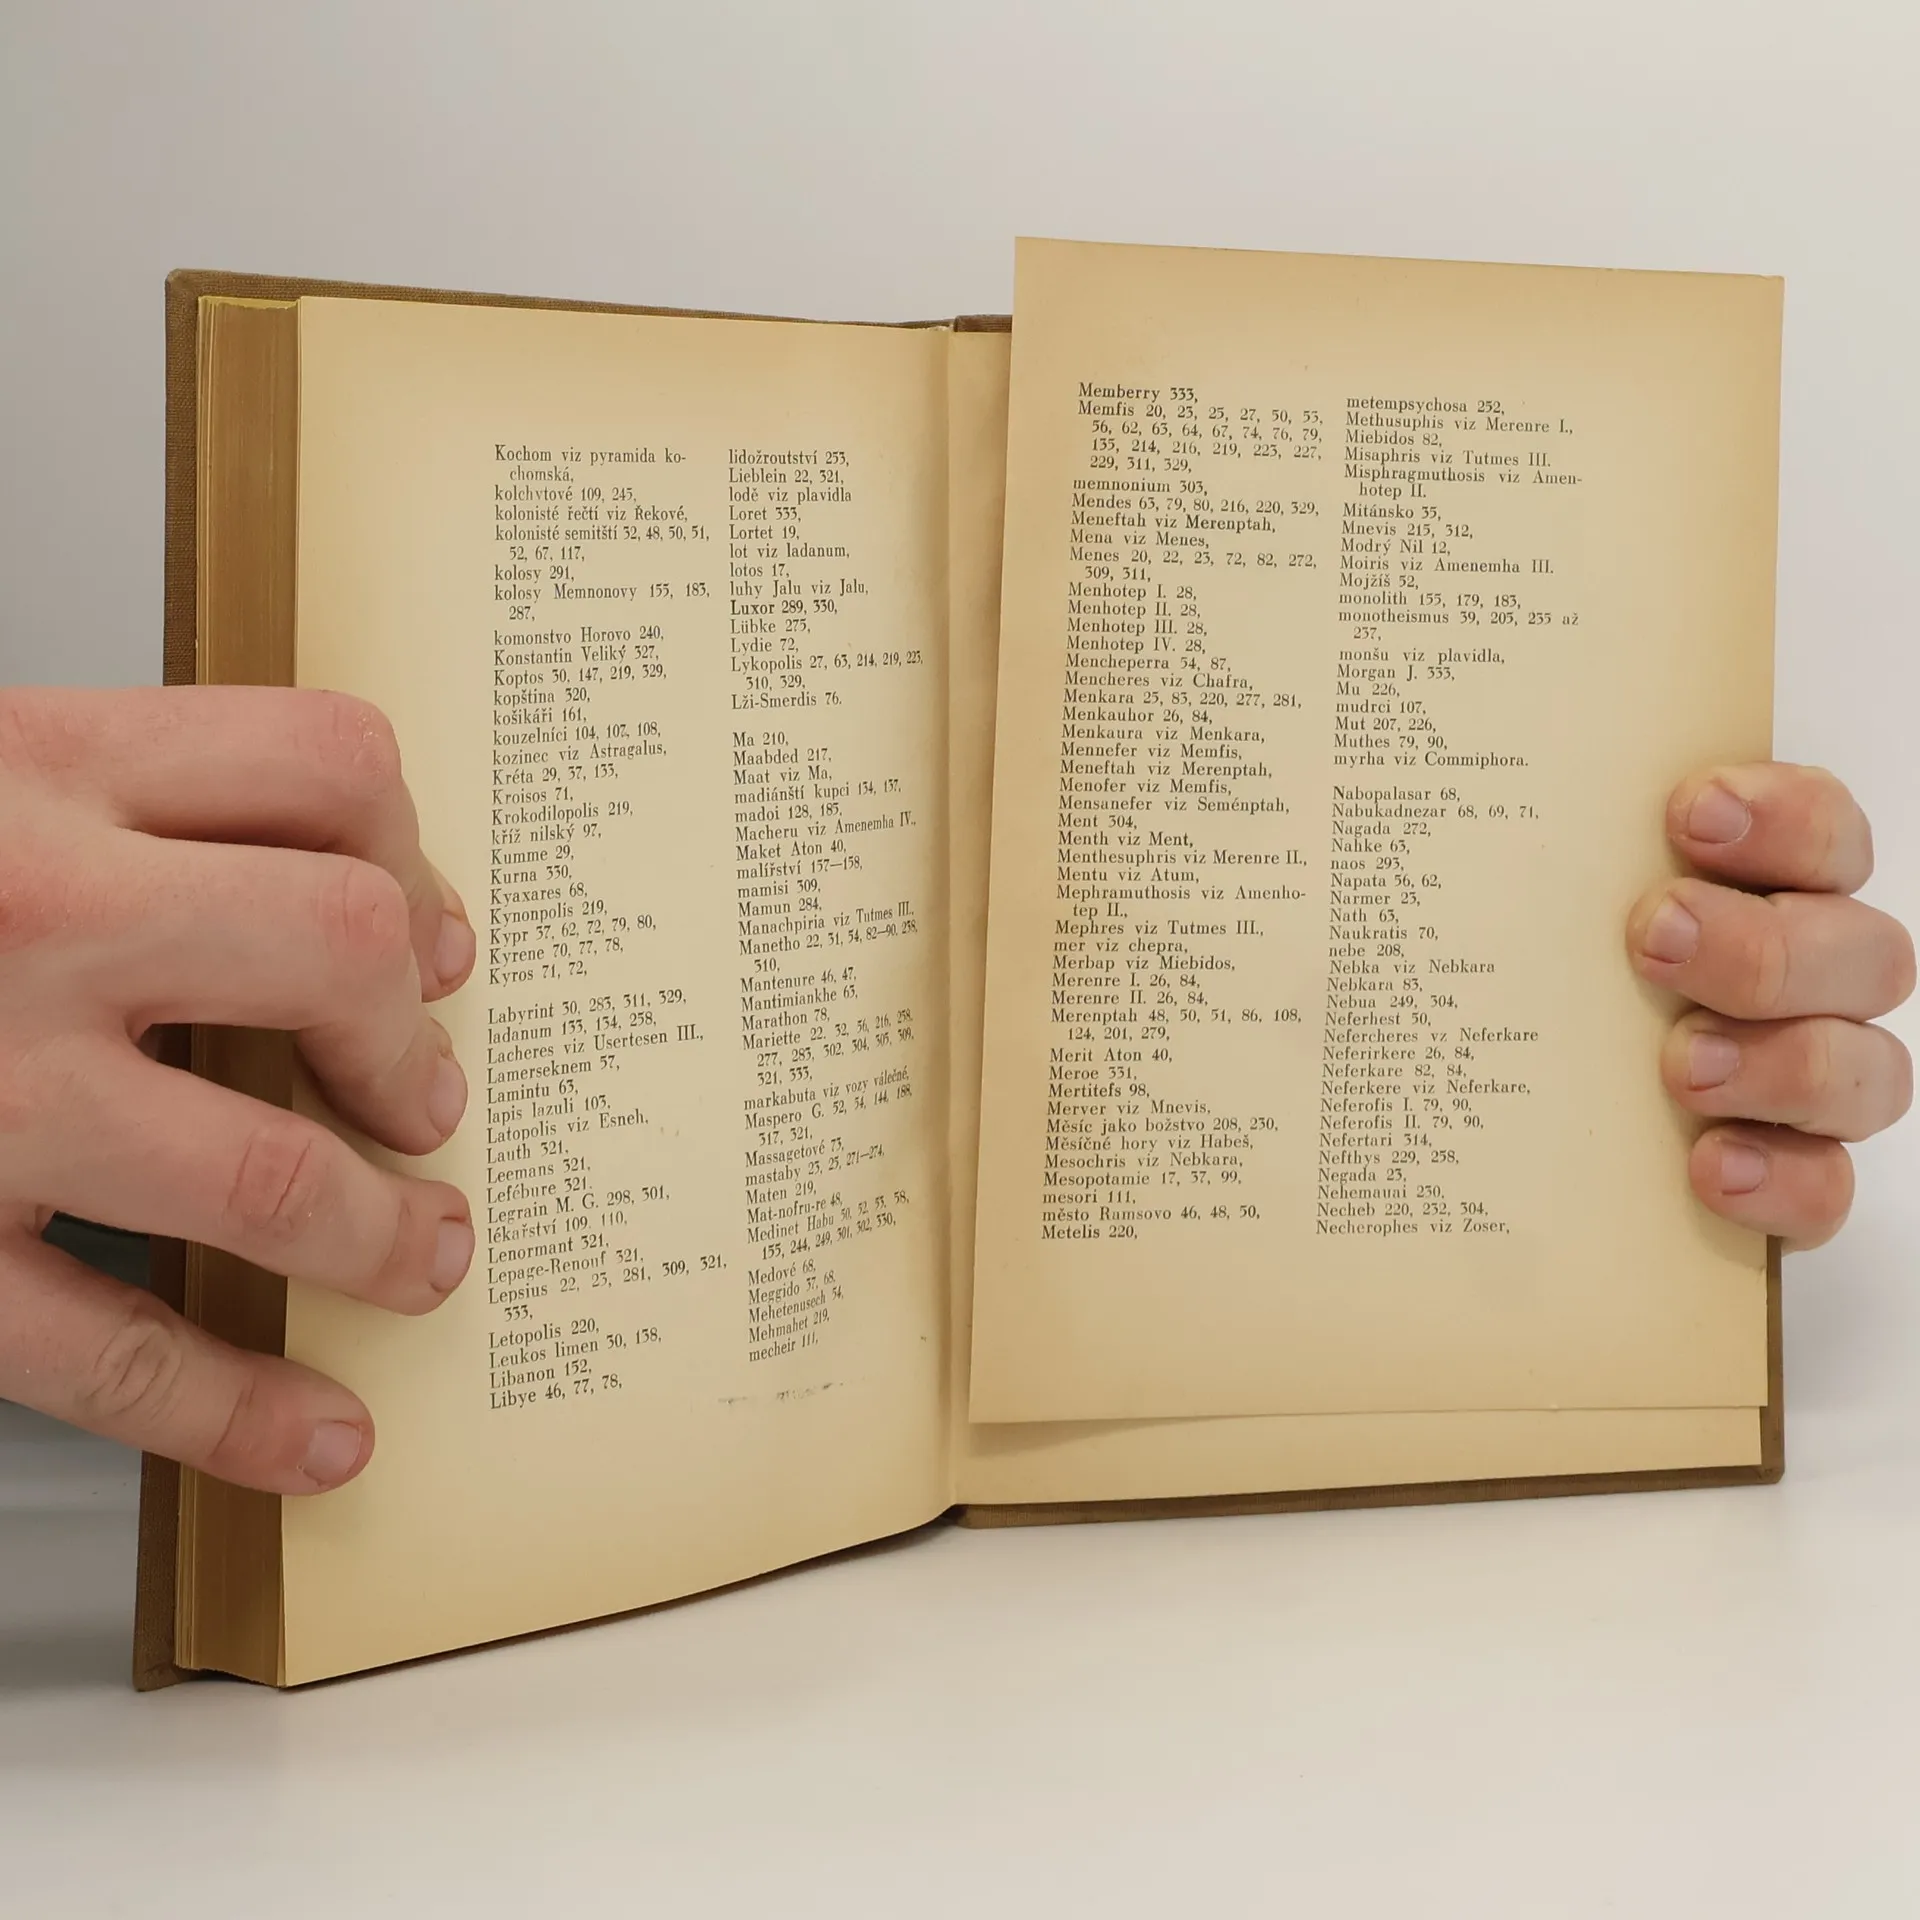 Kochom viz pyramida ko-
chomská,
kolchytové 109, 245,
kolonisté řečtí viz Řekové,
kolonisté semitští 32, 48, 50, 51,
52, 67, 117,
kolosy 291,
kolosy Memnonovy 155, 183,
287,
komonstvo Horovo 240,
Konstantin Veliký 327,
Koptos 30, 147, 219, 329,
kopština 320,
košikáři 161,
kouzelníci 104, 107, 108,
kozinec viz Astragalus,
Kréta 29, 37, 133,
Kroisos 71,
Krokodilopolis 219,
kříž nilský 97,
Kumme 29,
Kurna 330,
Kyaxares 68,
Kynonpolis 219,
Kypr 37, 62, 72, 79, 80,
Kyrene 70, 77, 78,
Kyros 71, 72,
Labyrint 30, 283, 311, 329,
ladanum 133, 134, 258,
Lacheres viz Usertesen III.,
Lamerseknem 57,
Lamintu 63,
lapis lazuli 103,
Latopolis viz Esneh,
Lauth 321,
Leemans 321,
Lefébure 321.
Legrain M. G. 298, 301,
lékařství 109. 110,
Lenormant 321,
Lepage-Renouf 321,
Lepsius 22, 23, 281, 309, 321,
333,
Letopolis 220,
Leukos limen 30, 138,
Libanon 152,
Libye 46, 77, 78,
lidožroutství 253,
Lieblein 22, 321,
lodě viz plavidla
Loret 333,
Lortet 19,
lot viz ladanum,
lotos 17,
luhy Jalu viz Jalu,
Luxor 289, 330,
Lübke 275,
Lydie 72,
Lykopolis 27, 63, 214, 219, 223,
310, 329,
Lži-Smerdis 76.
Ma 210,
Maabded 217,
Maat viz Ma,
madiánští kupci 134, 137,
madoi 128, 185,
Macheru viz Amenemha IV.,
Maket Aton 40,
malířství 157—158,
mamisi 309,
Mamun 284,
Manachpiria viz Tutmes III.,
Manetho 22, 31, 54, 82—90, 238,
310,
Mantenure 46, 47,
Mantimiankhe 63,
Marathon 78,
Mariette 22, 32, 56, 216, 258,
277, 283, 302, 304, 305, 309,
321, 333,
markabuta viz vozy válečné,
Maspero G. 52, 54, 144, 188,
317, 321,
Massagetové 73,
mastaby 23, 25, 271—274,
Maten 219,
Mat-nofru-re 48,
Medinet Habu 50, 52, 53, 58,
155, 244, 249, 301, 302, 330,
Medové 68,
Meggido 37, 68,
Mehetenusech 54,
Mehmahet 219,
mecheir 111,
Memberry 333,
Memfis 20, 23, 25, 27, 50, 53,
56, 62, 63, 64, 67, 74, 76, 79,
135, 214, 216, 219, 223, 227,
229, 311, 329,
memnonium 303,
Mendes 63, 79, 80, 216, 220, 329,
Meneftah viz Merenptah,
Mena viz Menes,
Menes 20, 22, 23, 72, 82, 272,
309, 311,
Menhotep I. 28,
Menhotep II. 28,
Menhotep III. 28,
Menhotep IV. 28,
Mencheperra 54, 87,
Mencheres viz Chafra,
Menkara 25, 83, 220, 277, 281,
Menkauhor 26, 84,
Menkaura viz Menkara,
Mennefer viz Memfis,
Meneftah viz Merenptah,
Menofer viz Memfis,
Mensanefer viz Seménptah,
Ment 304,
Menth viz Ment,
Menthesuphris viz Merenre II.,
Mentu viz Atum,
Mephramuthosis viz Amenho-
tep II.,
Mephres viz Tutmes III.,
mer viz chepra,
Merbap viz Miebidos,
Merenre I. 26, 84,
Merenre II. 26, 84,
Merenptah 48, 50, 51, 86, 108,
124, 201, 279,
Merit Aton 40,
Meroe 331,
Mertitefs 98,
Merver viz Mnevis,
Měsíc jako božstvo 208, 230,
Měsíčné hory viz Habeš,
Mesochris viz Nebkara,
Mesopotamie 17, 37, 99,
mesori 111,
město Ramsovo 46, 48, 50,
Metelis 220,
metempsychosa 252,
Methusuphis viz Merenre I.,
Miebidos 82,
Misaphris viz Tutmes III.
Misphragmuthosis viz Amen-
hotep II.
Mitánsko 35,
Mnevis 215, 312,
Modrý Nil 12,
Moiris viz Amenemha III.
Mojžíš 52,
monolith 155, 179, 183,
monotheismus 39, 205, 235 až
237,
monšu viz plavidla,
Morgan J. 333,
Mu 226,
mudrci 107,
Mut 207, 226,
Muthes 79, 90,
myrha viz Commiphora.
Nabopalasar 68,
Nabukadnezar 68, 69, 71,
Nagada 272,
Nahke 63,
naos 293,
Napata 56, 62,
Narmer 23,
Nath 63,
Naukratis 70,
nebe 208,
Nebka viz Nebkara
Nebkara 83,
Nebua 249, 304,
Neferhest 50,
Nefercheres vz Neferkare
Neferirkere 26, 84,
Neferkare 82, 84,
Neferkere viz Neferkare,
Neferofis I. 79, 90,
Neferofis II. 79, 90,
Nefertari 314,
Nefthys 229, 258,
Negada 23,
Nehemauai 230,
Necheb 220, 232, 304,
Necherophes viz Zoser,